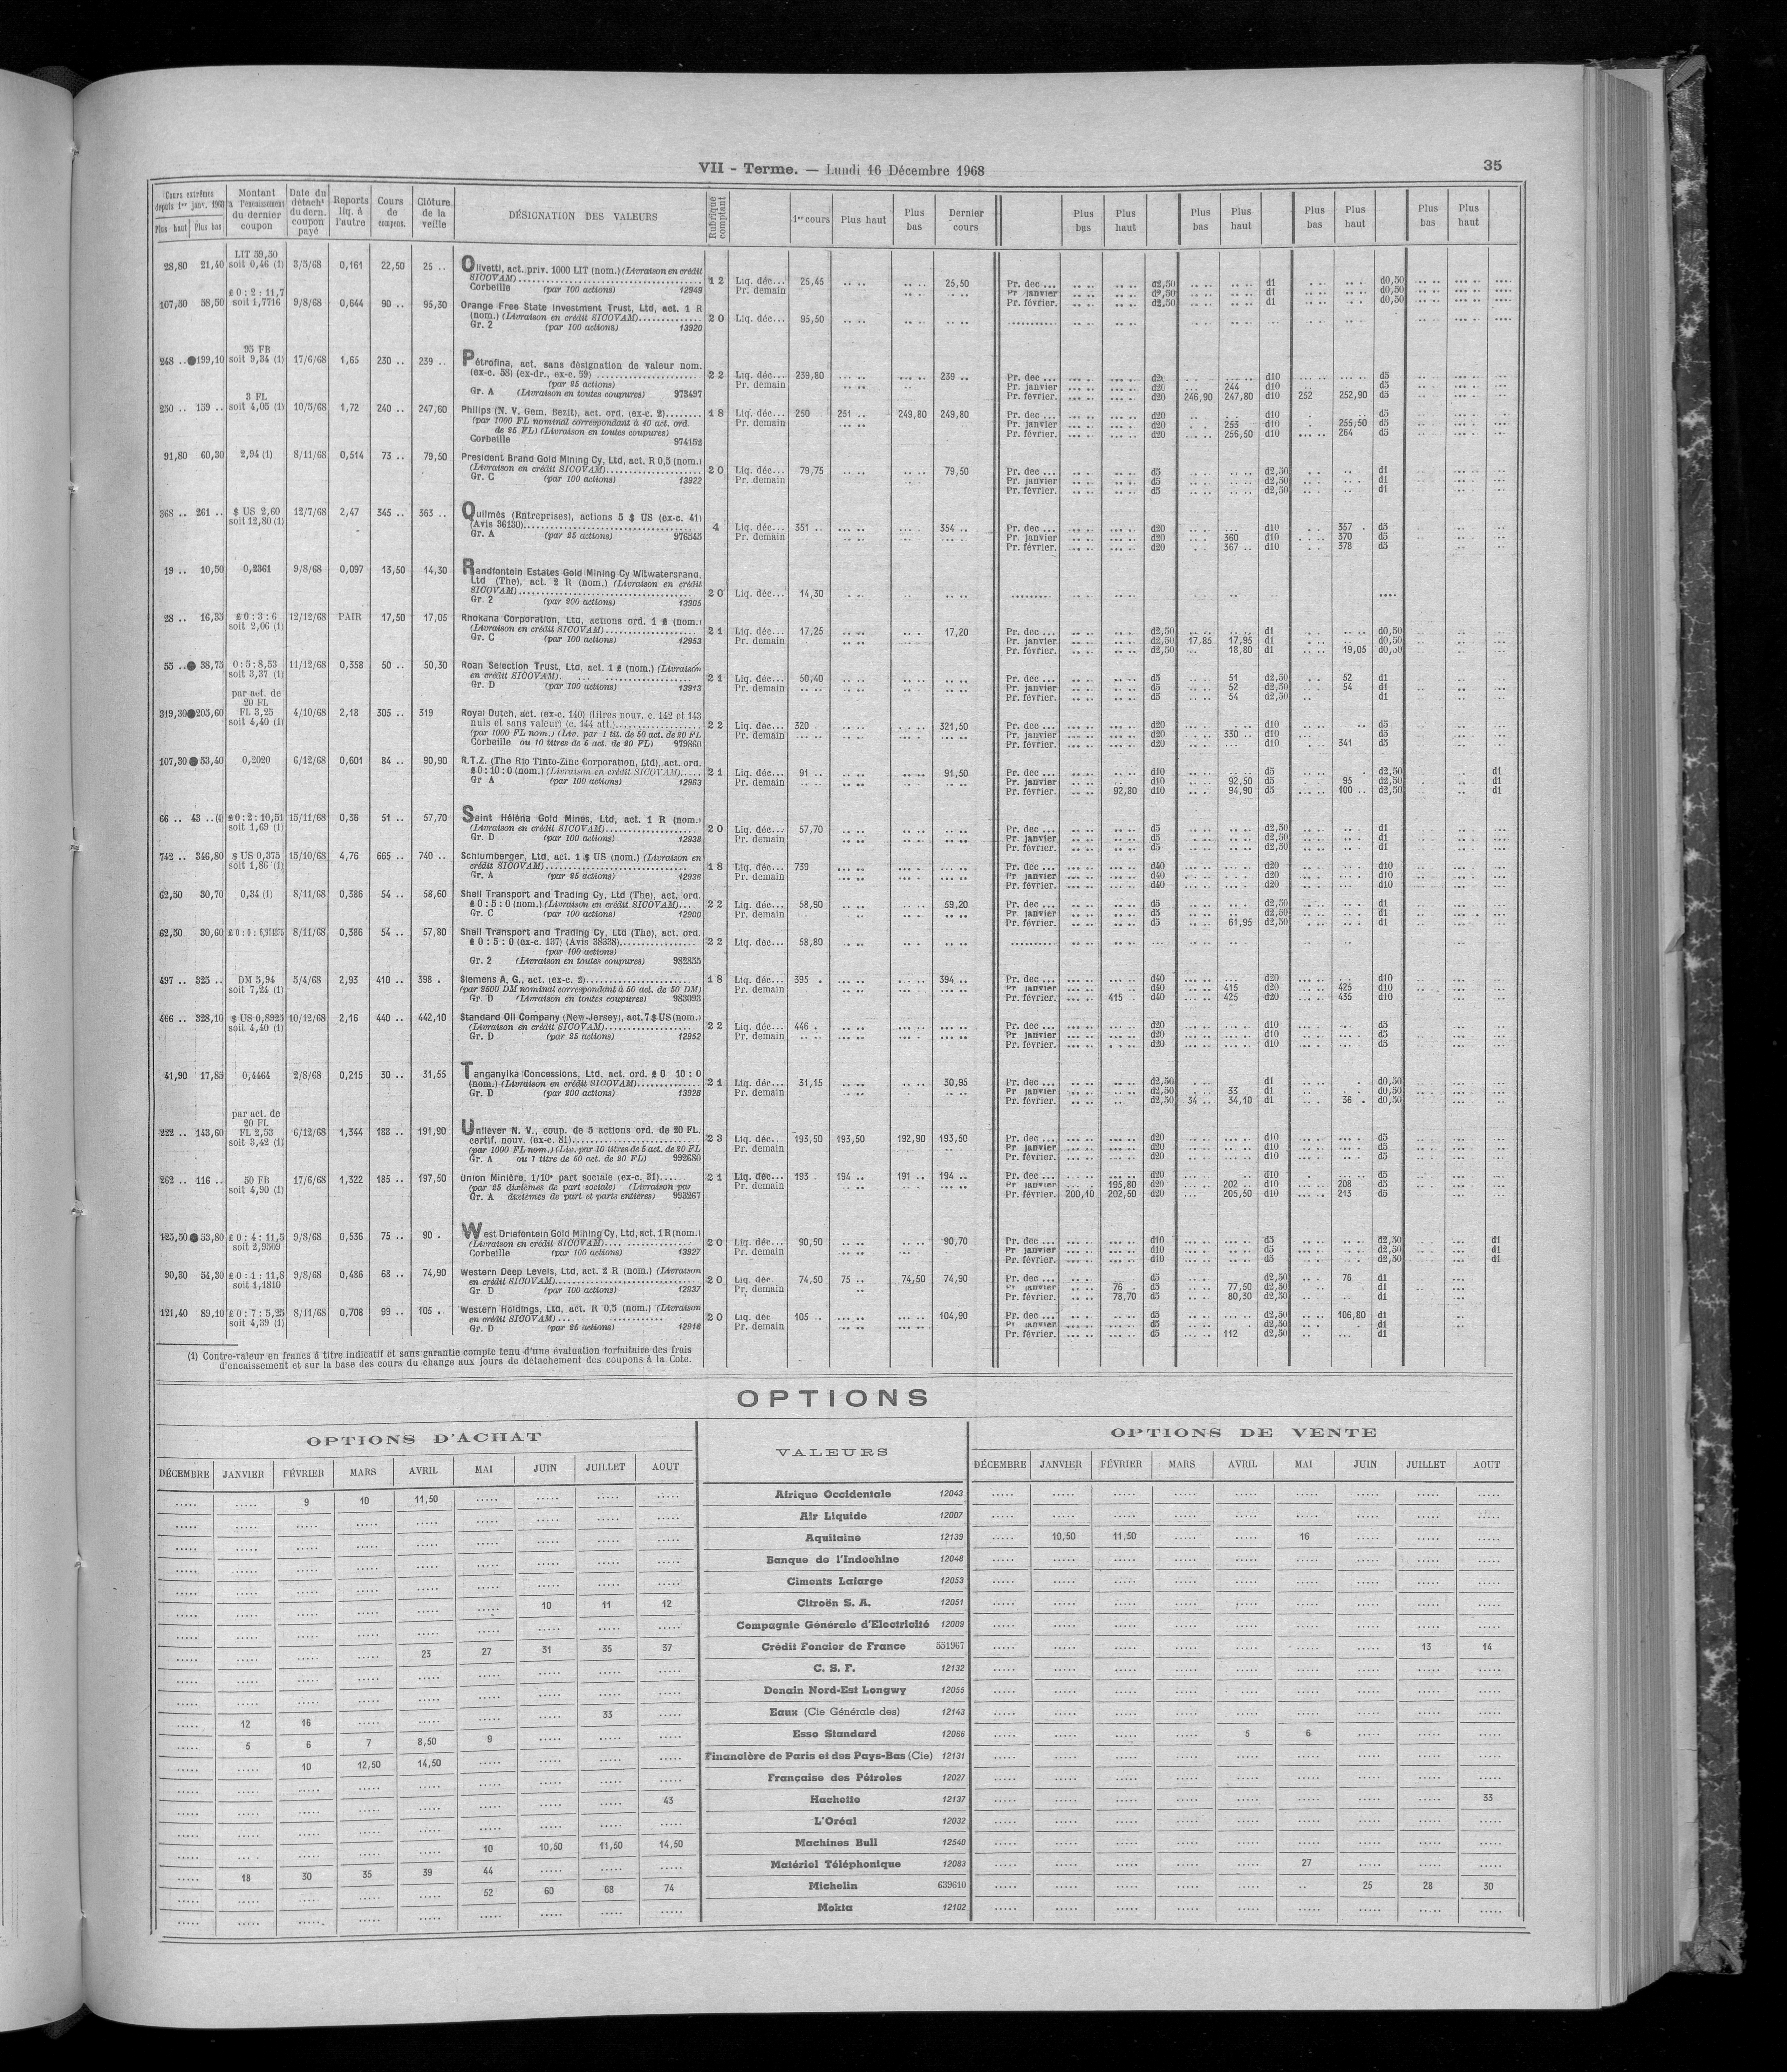 VII - Terme. — Lundi 16 Décembre 1968
35
Cours extrêmes depuis 1er janv. 1968 Plus haut Plus bas | Montant à l'encaissement du dernier coupon | Date du détacht du dern. coupon payé | Reports liq. à l'autre | Cours de compens. | Clôture de la veille | DÉSIGNATION DES VALEURS | Rubrique comptant | 1er cours | Plus haut | Plus bas | Dernier cours | Plus bas | Plus haut | Plus bas | Plus haut | Plus bas | Plus haut | Plus bas | Plus haut
LIT 59,50
28,80 21,40 soit 0,46 (1) 3/5/68 0,161 22,50 25 .. Olivetti, act. priv. 1000 LIT (nom.) (Livraison en crédit
SICOVAM) 12 Liq. déc... 25,45 25,50 Pr. dec ... d2,50 d1 d0,50
Corbeille (par 100 actions) 12949 Pr. demain Pr. janvier d2,50 d1 d0,50
Pr. février. d2,50 d1 d0,50
£ 0 : 2 : 11,7
107,50 58,50 soit 1,7716 9/8/68 0,644 90 .. 95,30 Orange Free State Investment Trust, Ltd, act. 1 R
(nom.) (Livraison en crédit SICOVAM) 20 Liq. déc... 95,50
Gr. 2 (par 100 actions) 13920
95 FB
248 .. ●199,10 soit 9,34 (1) 17/6/68 1,65 230 .. 239 .. Pétrofina, act. sans désignation de valeur nom.
(ex-c. 58) (ex-dr., ex-c. 59) 22 Liq. déc... 239,80 239 .. Pr. dec ... d20 d10 d5
(par 25 actions) Pr. demain Pr. janvier d20 244 d10 d5
Gr. A (Livraison en toutes coupures) 973497 Pr. février. d20 246,90 247,80 d10 252 252,90 d5
3 FL
250 .. 159 .. soit 4,05 (1) 10/5/68 1,72 240 .. 247,60 Philips (N. V. Gem. Bezit), act. ord. (ex-c. 2) 18 Liq. déc... 250 251 .. 249,80 249,80 Pr. dec ... d20 d10 d5
(par 1000 FL nominal correspondant à 40 act. ord. Pr. demain Pr. janvier d20 253 d10 255,50 d5
de 25 FL) (Livraison en toutes coupures) Pr. février. d20 256,50 d10 264 d5
Corbeille 974152
91,80 60,30 2,94 (1) 8/11/68 0,514 73 .. 79,50 President Brand Gold Mining Cy, Ltd, act. R 0,5 (nom.)
(Livraison en crédit SICOVAM) 20 Liq. déc... 79,75 79,50 Pr. dec ... d5 d2,50 d1
Gr. C (par 100 actions) 13922 Pr. demain Pr. janvier d5 d2,50 d1
Pr. février. d5 d2,50 d1
368 .. 261 .. $ US 2,60 12/7/68 2,47 345 .. 363 .. Quilmès (Entreprises), actions 5 $ US (ex-c. 41)
soit 12,80 (1) (Avis 36130) 4 Liq. déc... 351 .. 354 .. Pr. dec ... d20 d10 357 . d5
Gr. A (par 25 actions) 976545 Pr. demain Pr. janvier d20 360 d10 370 d5
Pr. février. d20 367 .. d10 378 d5
19 .. 10,50 0,2361 9/8/68 0,097 13,50 14,30 Randfontein Estates Gold Mining Cy Witwatersrand,
Ltd (The), act. 2 R (nom.) (Livraison en crédit
SICOVAM) 20 Liq. déc... 14,30
Gr. 2 (par 200 actions) 13905
28 .. 16,35 £ 0 : 3 : 6 12/12/68 PAIR 17,50 17,05 Rhokana Corporation, Ltd, actions ord. 1 £ (nom.)
soit 2,06 (1) (Livraison en crédit SICOVAM) 21 Liq. déc... 17,25 17,20 Pr. dec ... d2,50 d1 d0,50
Gr. C (par 100 actions) 12953 Pr. demain Pr. janvier d2,50 17,85 17,95 d1 d0,50
Pr. février. d2,50 18,80 d1 19,05 d0,50
55 .. ● 38,75 0 : 5 : 8,53 11/12/68 0,358 50 .. 50,30 Roan Selection Trust, Ltd, act. 1 £ (nom.) (Livraison
soit 3,37 (1) en crédit SICOVAM). 21 Liq. déc... 50,40 Pr. dec ... d5 51 d2,50 52 d1
Gr. D (par 100 actions) 13913 Pr. demain Pr. janvier d5 52 d2,50 54 d1
Pr. février. d5 54 d2,50 d1
par act. de
20 FL
319,30●205,60 FL 3,25 4/10/68 2,18 305 .. 319 Royal Dutch, act. (ex-c. 140) (titres nouv. c. 142 et 143
soit 4,40 (1) nuls et sans valeur) (c. 144 att.) 22 Liq. déc... 320 321,50 Pr. dec ... d20 d10 d5
(par 1000 FL nom.) (Liv. par 1 tit. de 50 act. de 20 FL Pr. demain Pr. janvier d20 330 .. d10
Corbeille ou 10 titres de 5 act. de 20 FL) 979860 Pr. février. d20 d10 341 d5
107,30 ● 53,40 0,2020 6/12/68 0,601 84 .. 90,90 R.T.Z. (The Rio Tinto-Zinc Corporation, Ltd), act. ord.
£ 0 : 10 : 0 (nom.) (Livraison en crédit SICOVAM) 21 Liq. déc... 91 .. 91,50 Pr. dec ... d10 d5 d2,50 d1
Gr A (par 100 actions) 12963 Pr. demain Pr. janvier d10 92,50 d5 95 d2,50 d1
Pr. février. 92,80 d10 94,90 d5 100 .. d2,50 d1
66 .. 43 .. £ 0 : 2 : 10,51 15/11/68 0,36 51 .. 57,70 Saint Héléna Gold Mines, Ltd, act. 1 R (nom.)
soit 1,69 (1) (Livraison en crédit SICOVAM) 20 Liq. déc... 57,70 Pr. dec ... d5 d2,50 d1
Gr. D (par 100 actions) 12938 Pr. demain Pr. janvier d5 d2,50 d1
Pr. février. d5 d2,50 d1
742 .. 346,80 $ US 0,375 15/10/68 4,76 665 .. 740 .. Schlumberger, Ltd, act. 1 $ US (nom.) (Livraison en
soit 1,86 (1) crédit SICOVAM) 18 Liq. déc... 739 Pr. dec ... d40 d20 d10
Gr. A (par 25 actions) 12936 Pr. demain Pr janvier d40 d20 d10
Pr. février. d40 d20 d10
62,50 30,70 0,34 (1) 8/11/68 0,386 54 .. 58,60 Shell Transport and Trading Cy, Ltd (The), act. ord.
£ 0 : 5 : 0 (nom.) (Livraison en crédit SICOVAM) 22 Liq. déc... 58,90 59,20 Pr. dec ... d5 d2,50 d1
Gr. C (par 100 actions) 12900 Pr. demain Pr. janvier d5 d2,50 d1
Pr. février. d5 61,95 d2,50 d1
62,50 30,60 8/11/68 0,386 54 .. 57,80 Shell Transport and Trading Cy, Ltd (The), act. ord.
£ 0 : 5 : 0 (ex-c. 137) (Avis 38338) 22 Liq. dec... 58,80
(par 100 actions)
Gr. 2 (Livraison en toutes coupures) 982855
497 .. 325 .. DM 5,94 5/4/68 2,93 410 .. 398 . Siemens A. G., act. (ex-c. 2) 18 Liq. déc... 395 . 394 .. Pr. dec ... d40 d20 d10
soit 7,24 (1) (par 2500 DM nominal correspondant à 50 act. de 50 DM) Pr. demain Pr janvier d40 415 d20 425 d10
Gr. D (Livraison en toutes coupures) 983093 Pr. février. 415 d40 425 d20 435 d10
466 .. 328,10 $ US 0,8925 10/12/68 2,16 440 .. 442,10 Standard Oil Company (New-Jersey), act. 7 $ US (nom.)
soit 4,40 (1) (Livraison en crédit SICOVAM) 22 Liq. déc... 446 . Pr. dec ... d20 d10 d5
Gr. D (par 25 actions) 12952 Pr. demain Pr janvier d20 d10 d5
Pr. février. d20 d10 d5
41,90 17,85 0,4464 2/8/68 0,215 30 .. 31,55 Tanganyika Concessions, Ltd, act. ord. £ 0 10 : 0
(nom.) (Livraison en crédit SICOVAM) 21 Liq. déc... 31,15 30,95 Pr. dec ... d2,50 d1 d0,50
Gr. D (par 200 actions) 13926 Pr. demain Pr janvier d2,50 33 .. d1 d0,50
Pr. février. d2,50 34 .. 34,10 d1 36 . d0,50
par act. de
20 FL
222 .. 143,60 FL 2,53 6/12/68 1,344 188 .. 191,90 Unilever N. V., coup. de 5 actions ord. de 20 FL.
soit 3,42 (1) certif. nouv. (ex-c. 81) 23 Liq. déc.. 193,50 193,50 192,90 193,50 Pr. dec ... d20 d10 d5
(par 1000 FL nom.) (Liv. par 10 titres de 5 act. de 20 FL Pr. demain Pr janvier d20 d10 d5
Gr. A ou 1 titre de 50 act. de 20 FL) 992680 Pr. février. d20 d10 d5
262 .. 116 .. 50 FB 17/6/68 1,322 185 .. 197,50 Union Minière, 1/10e part sociale (ex-c. 31) 21 Liq. déc... 193 . 194 .. 191 .. 194 .. Pr. dec ... d20 d10 d5
soit 4,90 (1) (par 25 dixièmes de part sociale) (Livraison par Pr. demain Pr janvier 195,80 d20 202 .. d10 208 d5
Gr. A dixièmes de part et parts entières) 993267 Pr. février. 200,10 202,50 d20 205,50 d10 213 d5
125,50 ● 53,80 £ 0 : 4 : 11,5 9/8/68 0,536 75 .. 90 . West Driefontein Gold Mining Cy, Ltd, act. 1 R (nom.)
soit 2,9509 (Livraison en crédit SICOVAM) 20 Liq. déc... 90,50 90,70 Pr. dec ... d10 d5 d2,50 d1
Corbeille (par 100 actions) 13927 Pr. demain Pr janvier d10 d5 d2,50 d1
Pr. février. d10 d5 d2,50 d1
90,30 54,30 £ 0 : 1 : 11,8 9/8/68 0,486 68 .. 74,90 Western Deep Levels, Ltd, act. 2 R (nom.) (Livraison
soit 1,1810 en crédit SICOVAM) 20 Liq. déc 74,50 75 .. 74,50 74,90 Pr. dec ... d5 d2,50 76 d1
Gr D (par 100 actions) 12937 Pr. demain Pr janvier 76 . d5 77,50 d2,50 d1
Pr. février. 78,70 d5 80,30 d2,50 d1
121,40 89,10 £ 0 : 7 : 5,25 8/11/68 0,708 99 .. 105 . Western Holdings, Ltd, act. R 0,5 (nom.) (Livraison
soit 4,39 (1) en crédit SICOVAM) 20 Liq. déc 105 .. 104,90 Pr. dec ... d5 d2,50 106,80 d1
Gr. D (par 25 actions) 12918 Pr. demain Pr janvier d5 d2,50 d1
Pr. février. d5 112 d2,50 d1
(1) Contre-valeur en francs à titre indicatif et sans garantie compte tenu d'une évaluation forfaitaire des frais
d'encaissement et sur la base des cours du change aux jours de détachement des coupons à la Cote.
OPTIONS
OPTIONS D'ACHAT | VALEURS | OPTIONS DE VENTE
DÉCEMBRE JANVIER FÉVRIER MARS AVRIL MAI JUIN JUILLET AOUT | DÉCEMBRE JANVIER FÉVRIER MARS AVRIL MAI JUIN JUILLET AOUT
..... ..... 9 10 11,50 ..... ..... ..... ..... Afrique Occidentale 12043 ..... ..... ..... ..... ..... ..... ..... ..... .....
..... ..... ..... ..... ..... ..... ..... ..... ..... Air Liquide 12007 ..... ..... ..... ..... ..... ..... ..... ..... .....
..... ..... ..... ..... ..... ..... ..... ..... ..... Aquitaine 12139 ..... 10,50 11,50 ..... ..... 16 ..... ..... .....
..... ..... ..... ..... ..... ..... ..... ..... ..... Banque de l'Indochine 12048 ..... ..... ..... ..... ..... ..... ..... ..... .....
..... ..... ..... ..... ..... ..... ..... ..... ..... Ciments Lafarge 12053 ..... ..... ..... ..... ..... ..... ..... ..... .....
..... ..... ..... ..... ..... ..... 10 11 12 Citroën S. A. 12051 ..... ..... ..... ..... ..... ..... ..... ..... .....
..... ..... ..... ..... ..... ..... ..... ..... ..... Compagnie Générale d'Electricité 12009 ..... ..... ..... ..... ..... ..... ..... ..... .....
..... ..... ..... ..... 23 27 31 35 37 Crédit Foncier de France 551967 ..... ..... ..... ..... ..... ..... ..... 13 14
..... ..... ..... ..... ..... ..... ..... ..... ..... C. S. F. 12132 ..... ..... ..... ..... ..... ..... ..... ..... .....
..... ..... ..... ..... ..... ..... ..... ..... ..... Denain Nord-Est Longwy 12055 ..... ..... ..... ..... ..... ..... ..... ..... .....
..... 12 16 ..... ..... ..... ..... 33 ..... Eaux (Cie Générale des) 12143 ..... ..... ..... ..... ..... ..... ..... ..... .....
..... 5 6 7 8,50 9 ..... ..... ..... Esso Standard 12066 ..... ..... ..... ..... 5 6 ..... ..... .....
..... ..... 10 12,50 14,50 ..... ..... ..... ..... Financière de Paris et des Pays-Bas (Cie) 12131 ..... ..... ..... ..... ..... ..... ..... ..... .....
..... ..... ..... ..... ..... ..... ..... ..... ..... Française des Pétroles 12027 ..... ..... ..... ..... ..... ..... ..... ..... .....
..... ..... ..... ..... ..... ..... ..... ..... 43 Hachette 12137 ..... ..... ..... ..... ..... ..... ..... ..... 33
..... ..... ..... ..... ..... ..... ..... ..... ..... L'Oréal 12032 ..... ..... ..... ..... ..... ..... ..... ..... .....
..... ..... ..... ..... ..... 10 10,50 11,50 14,50 Machines Bull 12540 ..... ..... ..... ..... ..... ..... ..... ..... .....
..... 18 30 35 39 44 ..... ..... ..... Matériel Téléphonique 12083 ..... ..... ..... ..... ..... 27 ..... ..... .....
..... ..... ..... ..... ..... 52 60 68 74 Michelin 639610 ..... ..... ..... ..... ..... .. 25 28 30
..... ..... ..... ..... ..... ..... ..... ..... ..... Mokta 12102 ..... ..... ..... ..... ..... ..... ..... ..... .....